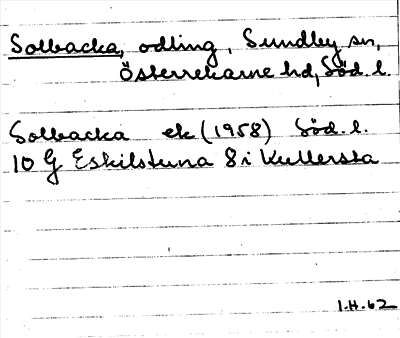 Solbacka, odling, Sundby sn,
Österrekarne hd, Söd. l.
Solbacka ek (1958) Söd. l.
10 G Eskilstuna 8 i Kullersta
I.H. 62